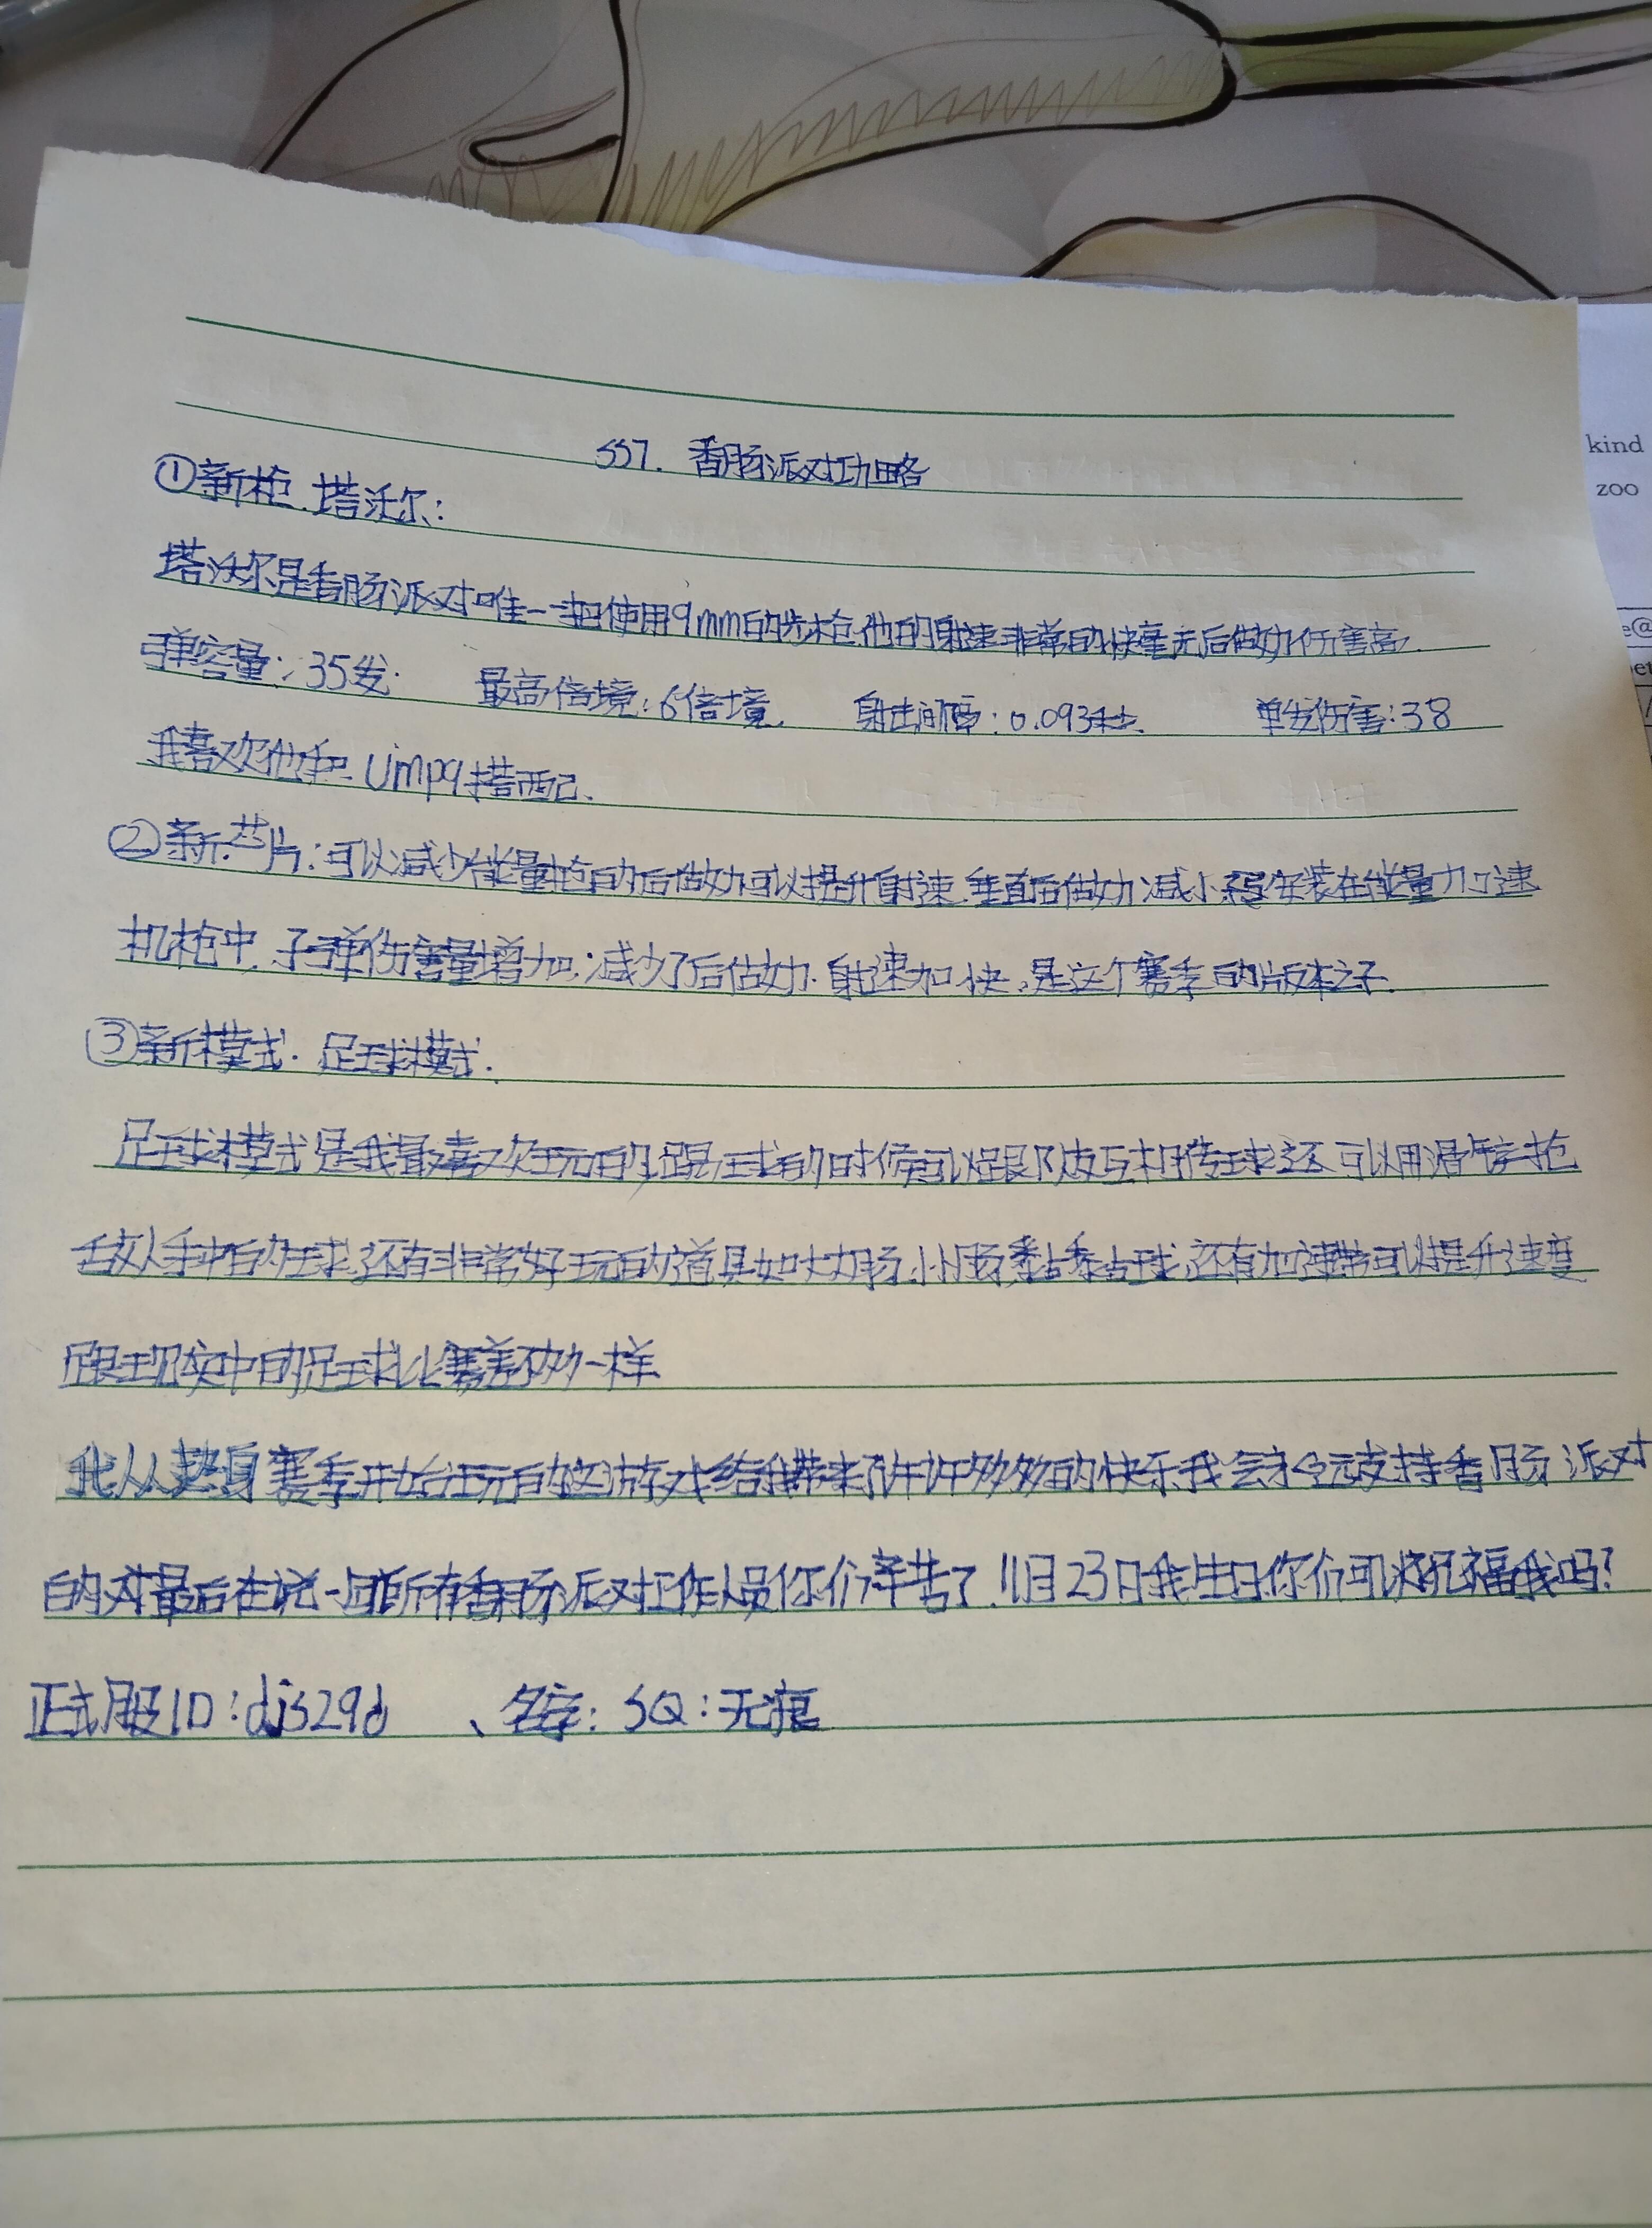 SS7. 香肠派对功略
①新枪.塔沃尔:
塔沃尔是香肠派对唯一一把使用9mm的步枪.他的射速非常的快毫无后做力伤害高.
弹容量:35发. 最高倍境:6倍境. 射击间隔:0.093秒. 单发伤害:38
我喜欢他和Ump9搭配.
②新芯片:可以减少能量枪的后做力可以提升射速.垂直后做力减小.安装在能量加速
机枪中.子弹伤害量增加.减少了后做力.射速加快.是这个赛季的版本之子.
③新模式.足球模式.
足球模式是我最喜欢玩的踢球的时候可以跟队友互相传球还可以用滑铲抢
敌人手中的球.还有非常好玩的道具如大力肠.小肠黏黏球.还有加速带可以提升速度
跟现实中的足球比赛差不多一样
我从热身赛季开始玩的这游戏给我带来了许许多多的快乐我会永远支持香肠派对
的对最后在说一句所有香肠派对工作人员你们辛苦了.11月23日我生日你们可以祝福我吗?
正式服ID:djs29d 、名字:SQ:无痕
kind
zoo
e@